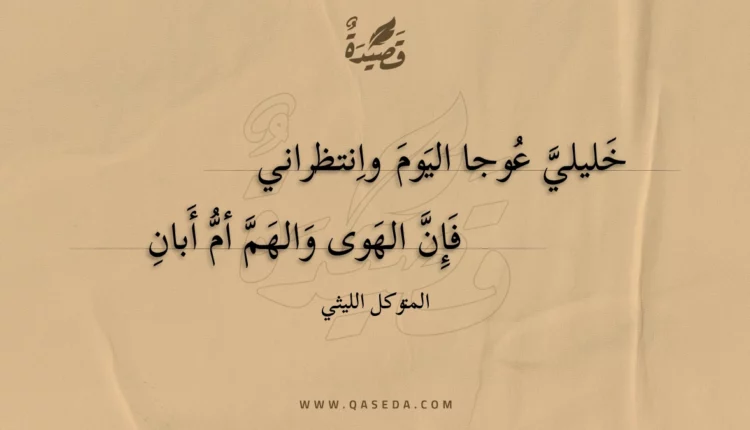 قَصِيْدَةٌ
خَليليَّ عُوجا اليَومَ واِنتظراني
فَإِنَّ الهَوى وَالهَمَّ أمُّ أَبانِ
المتوكل الليثي
WWW.QASEDA.COM